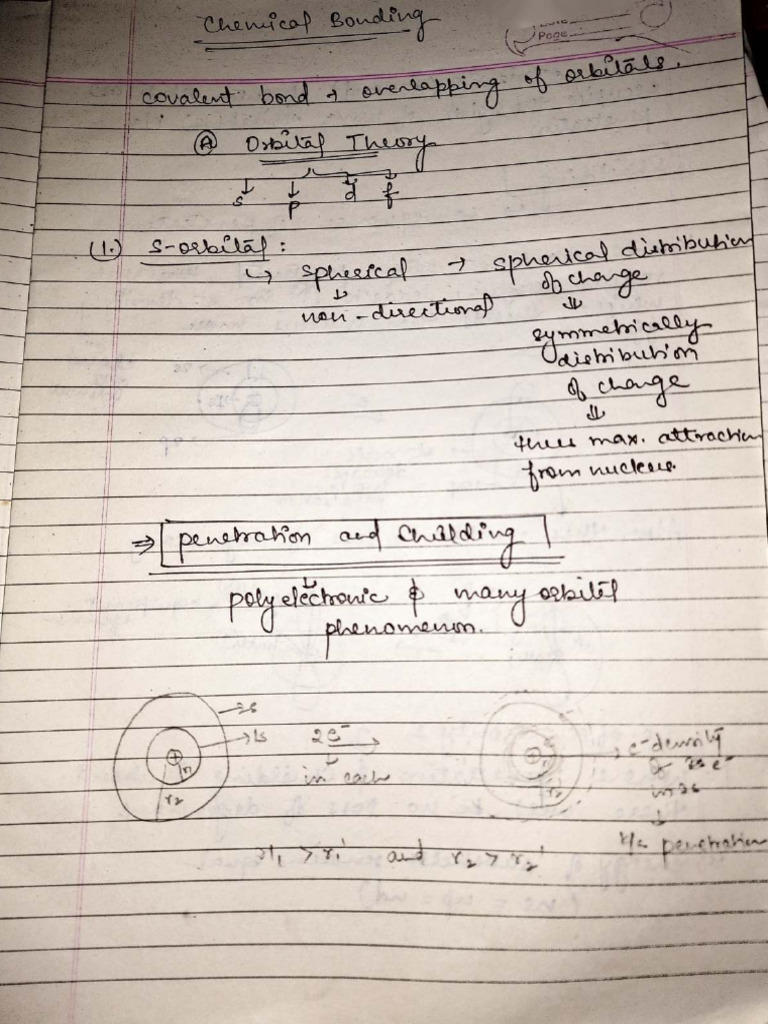 Chemical Bonding
Page
covalent bond → overlapping of orbitals.
Ⓐ Orbital Theory
s p d f
(1.) s-orbital :
↳ spherical → spherical distribution
of change
non-directional
symmetrically
distribution
of change
thus max. attraction
from nucleus.
⇒ penetration and shielding
polyelectronic & many orbital
phenomenon.
2s
1s
r1
r2
2e⁻
in each
r1'
r2'
e⁻ density
of 2s e⁻
in 1s
penetration
r1 > r1' and r2 > r2'